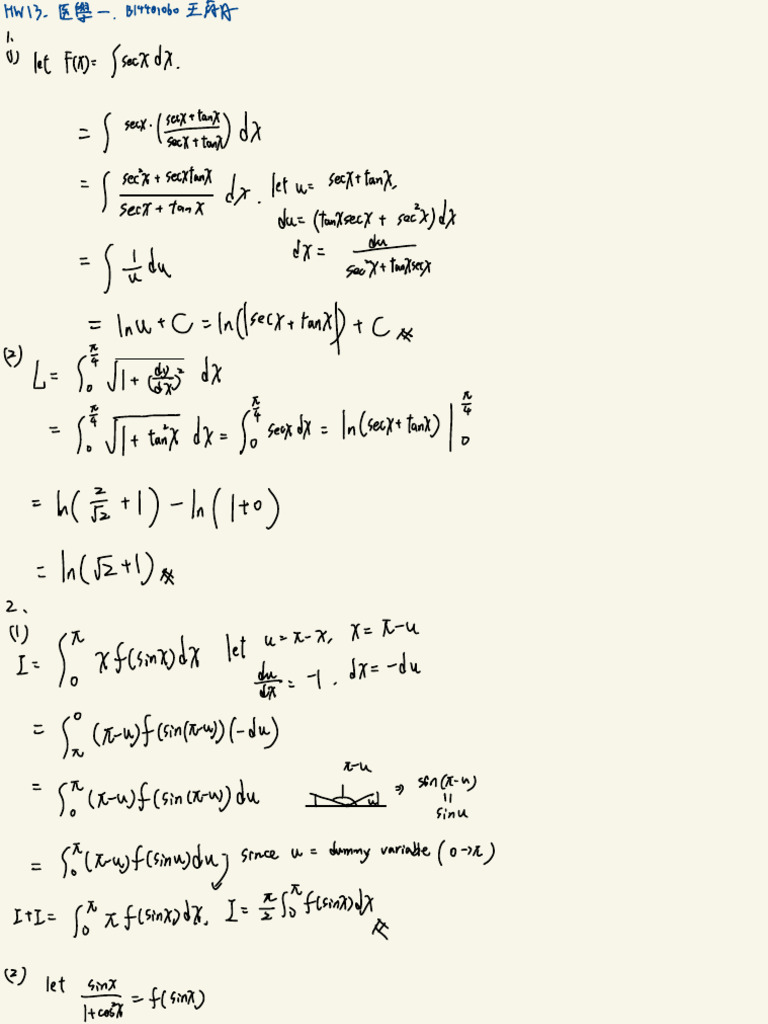 HW13. 医學一. B14401060 王
1.
(1) let F(x) = ∫ secx dx.
= ∫ secx · ((secx + tanx)/(secx + tanx)) dx
= ∫ (sec²x + secxtanx)/(secx + tanx) dx. let u = secx + tanx,
du = (tanxsecx + sec²x)dx
= ∫ 1/u du dx = du/(sec²x + tanxsecx)
= lnu + C = ln(|secx + tanx|) + C
(2) L = ∫₀^(π/4) √(1 + (dy/dx)²) dx
= ∫₀^(π/4) √(1 + tan²x) dx = ∫₀^(π/4) secx dx = ln(secx + tanx) |₀^(π/4)
= ln(2/√2 + 1) - ln(1+0)
= ln(√2 + 1)
2、
(1) I = ∫₀^π x f(sinx)dx let u = π-x, x = π-u
du/dx = -1. dx = -du
= ∫_π^0 (π-u)f(sin(π-u))(-du)
= ∫₀^π (π-u)f(sin(π-u))du π-u u ⇒ sin(π-u) = sinu
= ∫₀^π (π-u)f(sinu)du, since u = dummy variable (0→π)
I+I = ∫₀^π π f(sinx)dx, I = π/2 ∫₀^π f(sinx)dx
(2) let sinx/(1+cos²x) = f(sinx)